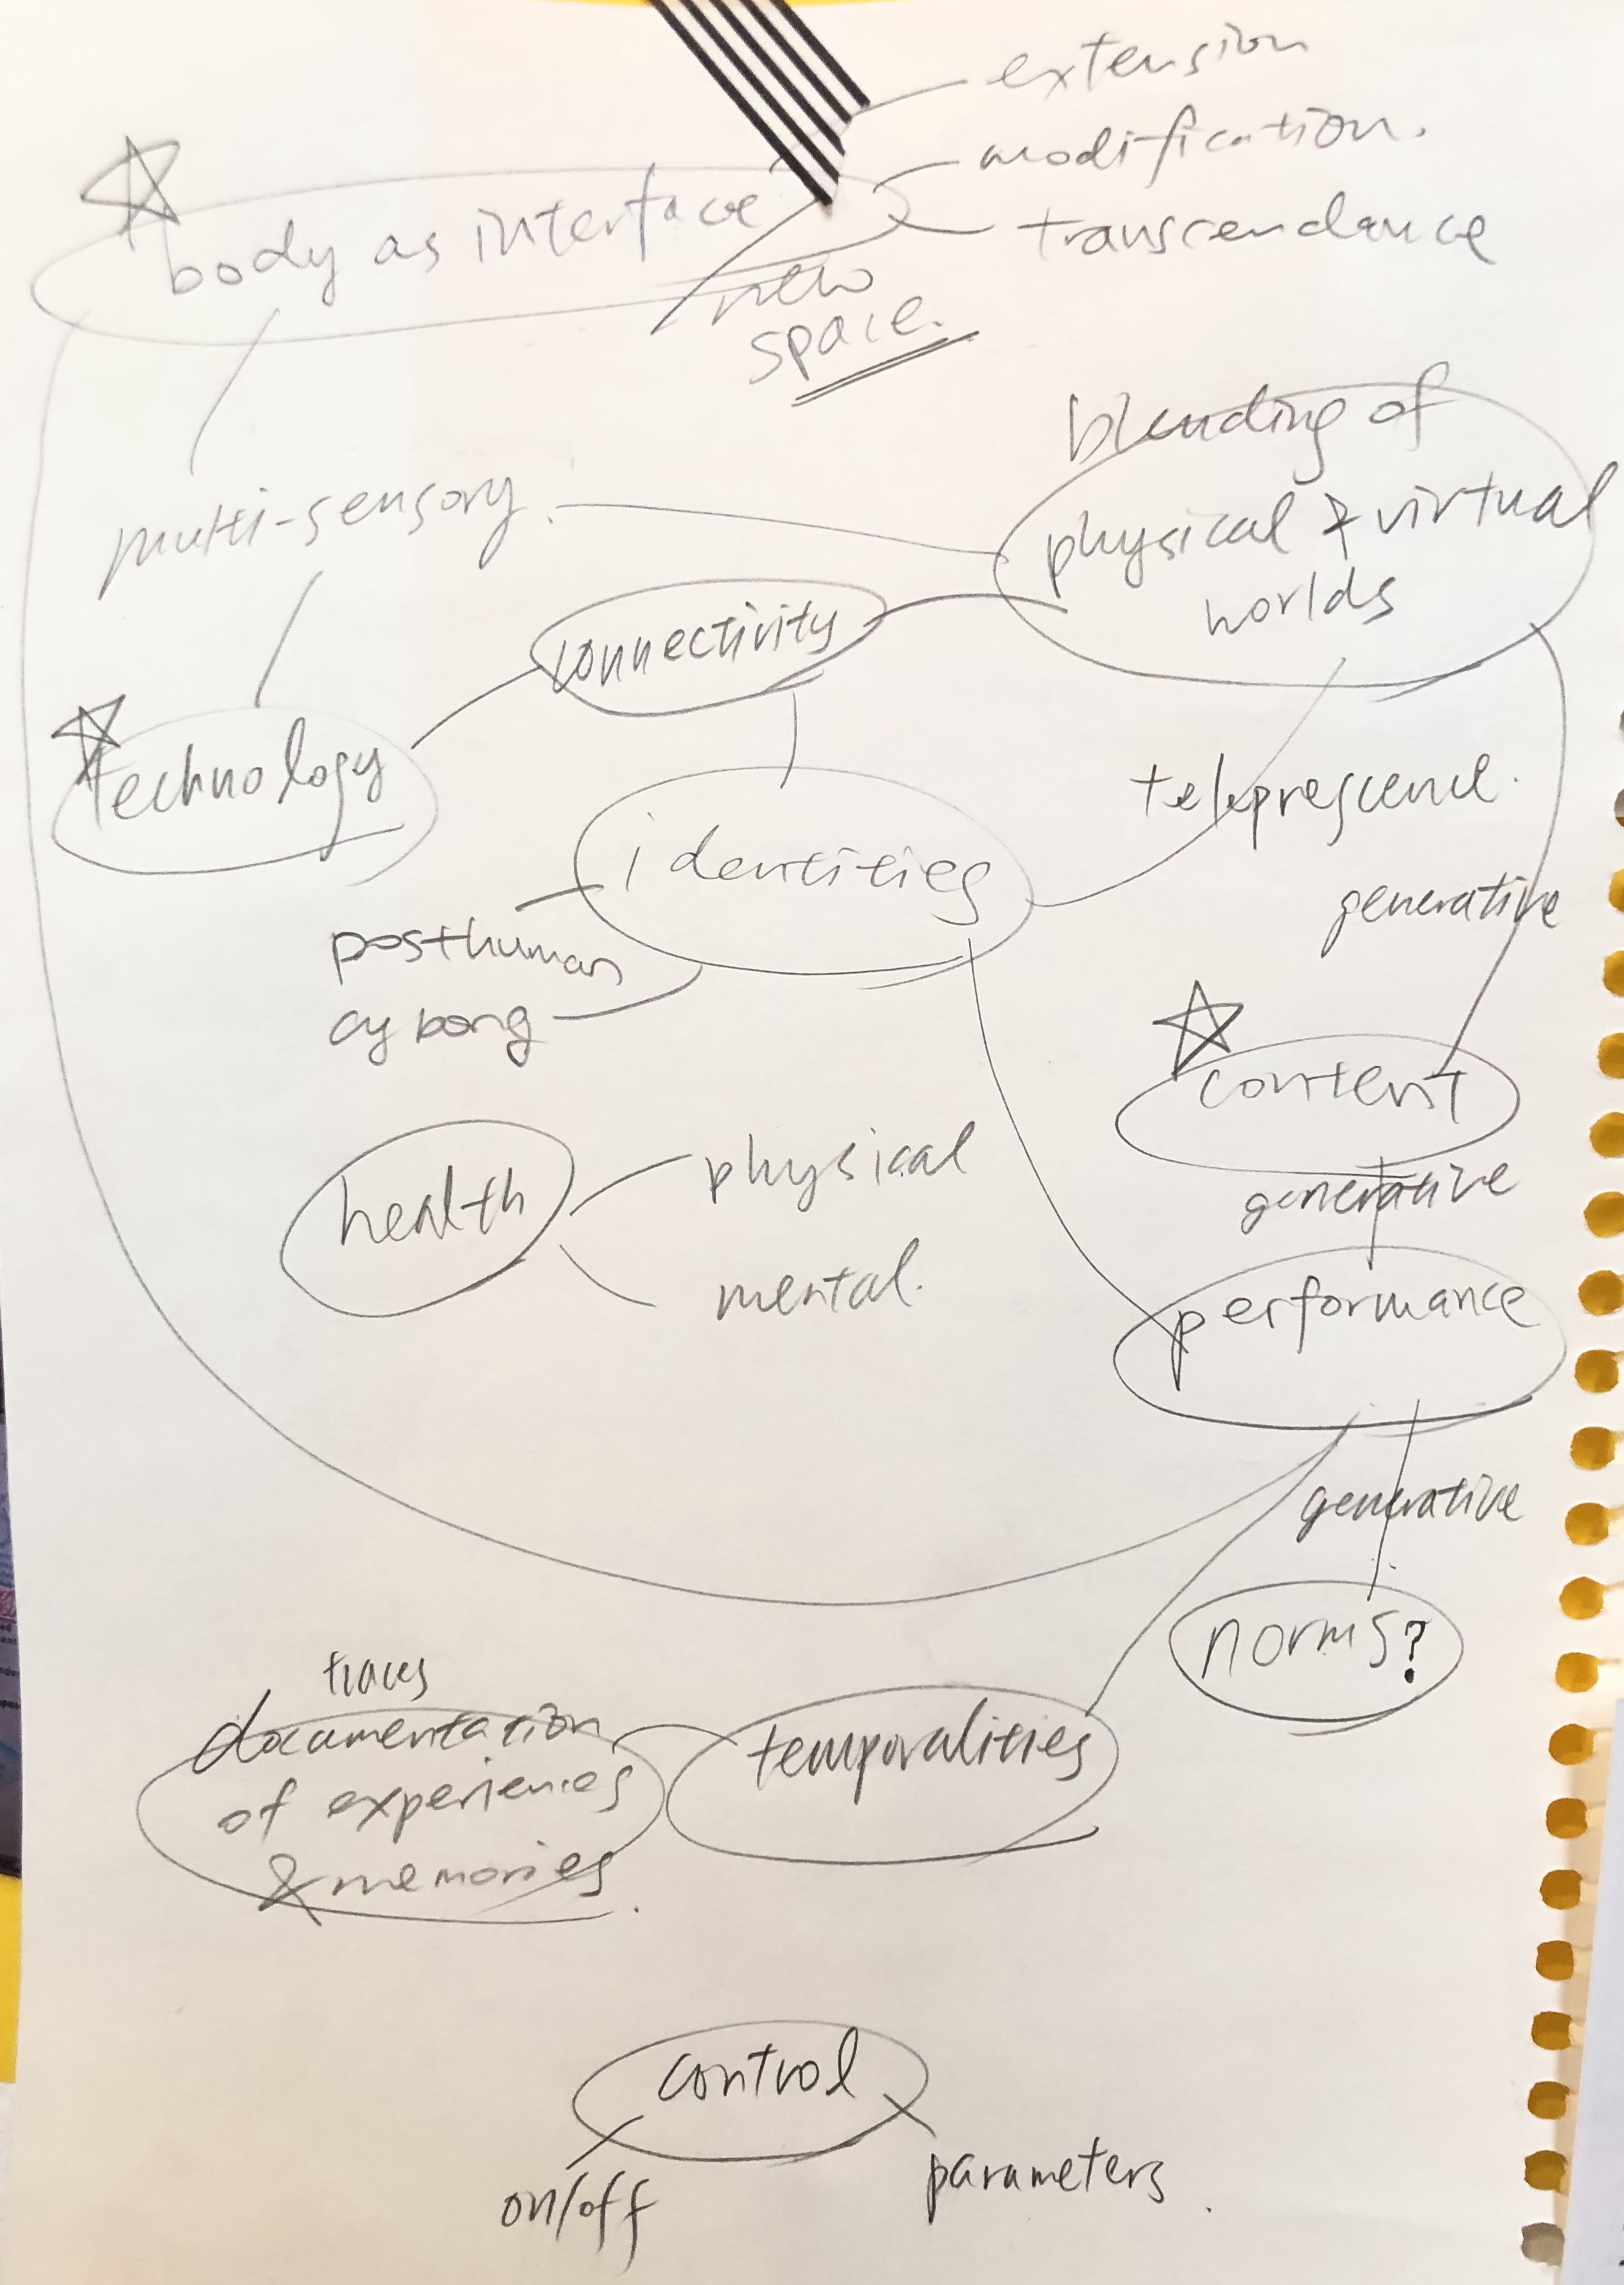 extension
modification.
transcendance
body as interface
new
space.
blending of
physical & virtual
worlds
multi-sensory.
connectivity
technology
teleprescence.
identities
generative
posthuman
cybong
content
generative
health
physical
mental.
performance
generative
norms?
traces
documentation
of experiences
& memories.
temporalities
control
on/off
parameters.